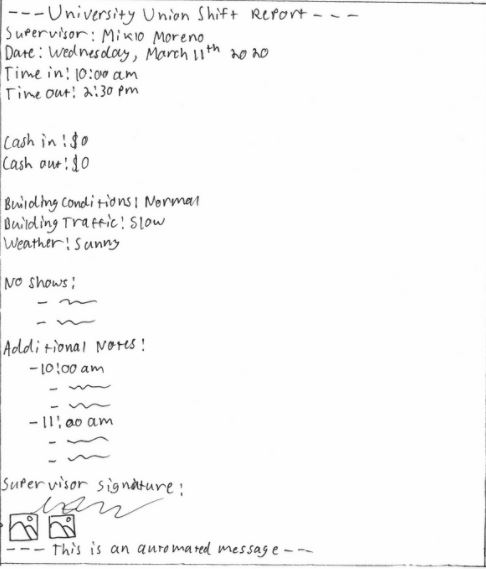 --- University Union Shift Report ---
Supervisor: Mikio Moreno
Date: Wednesday, March 11th 2020
Time in: 10:00 am
Time out: 2:30 pm
Cash in: $0
Cash out: $0
Building Conditions: Normal
Building Traffic: Slow
Weather: Sunny
No Shows:
-
-
Additional Notes:
-10:00 am
-
-
-11:00 am
-
-
Supervisor signature:
--- This is an automated message ---